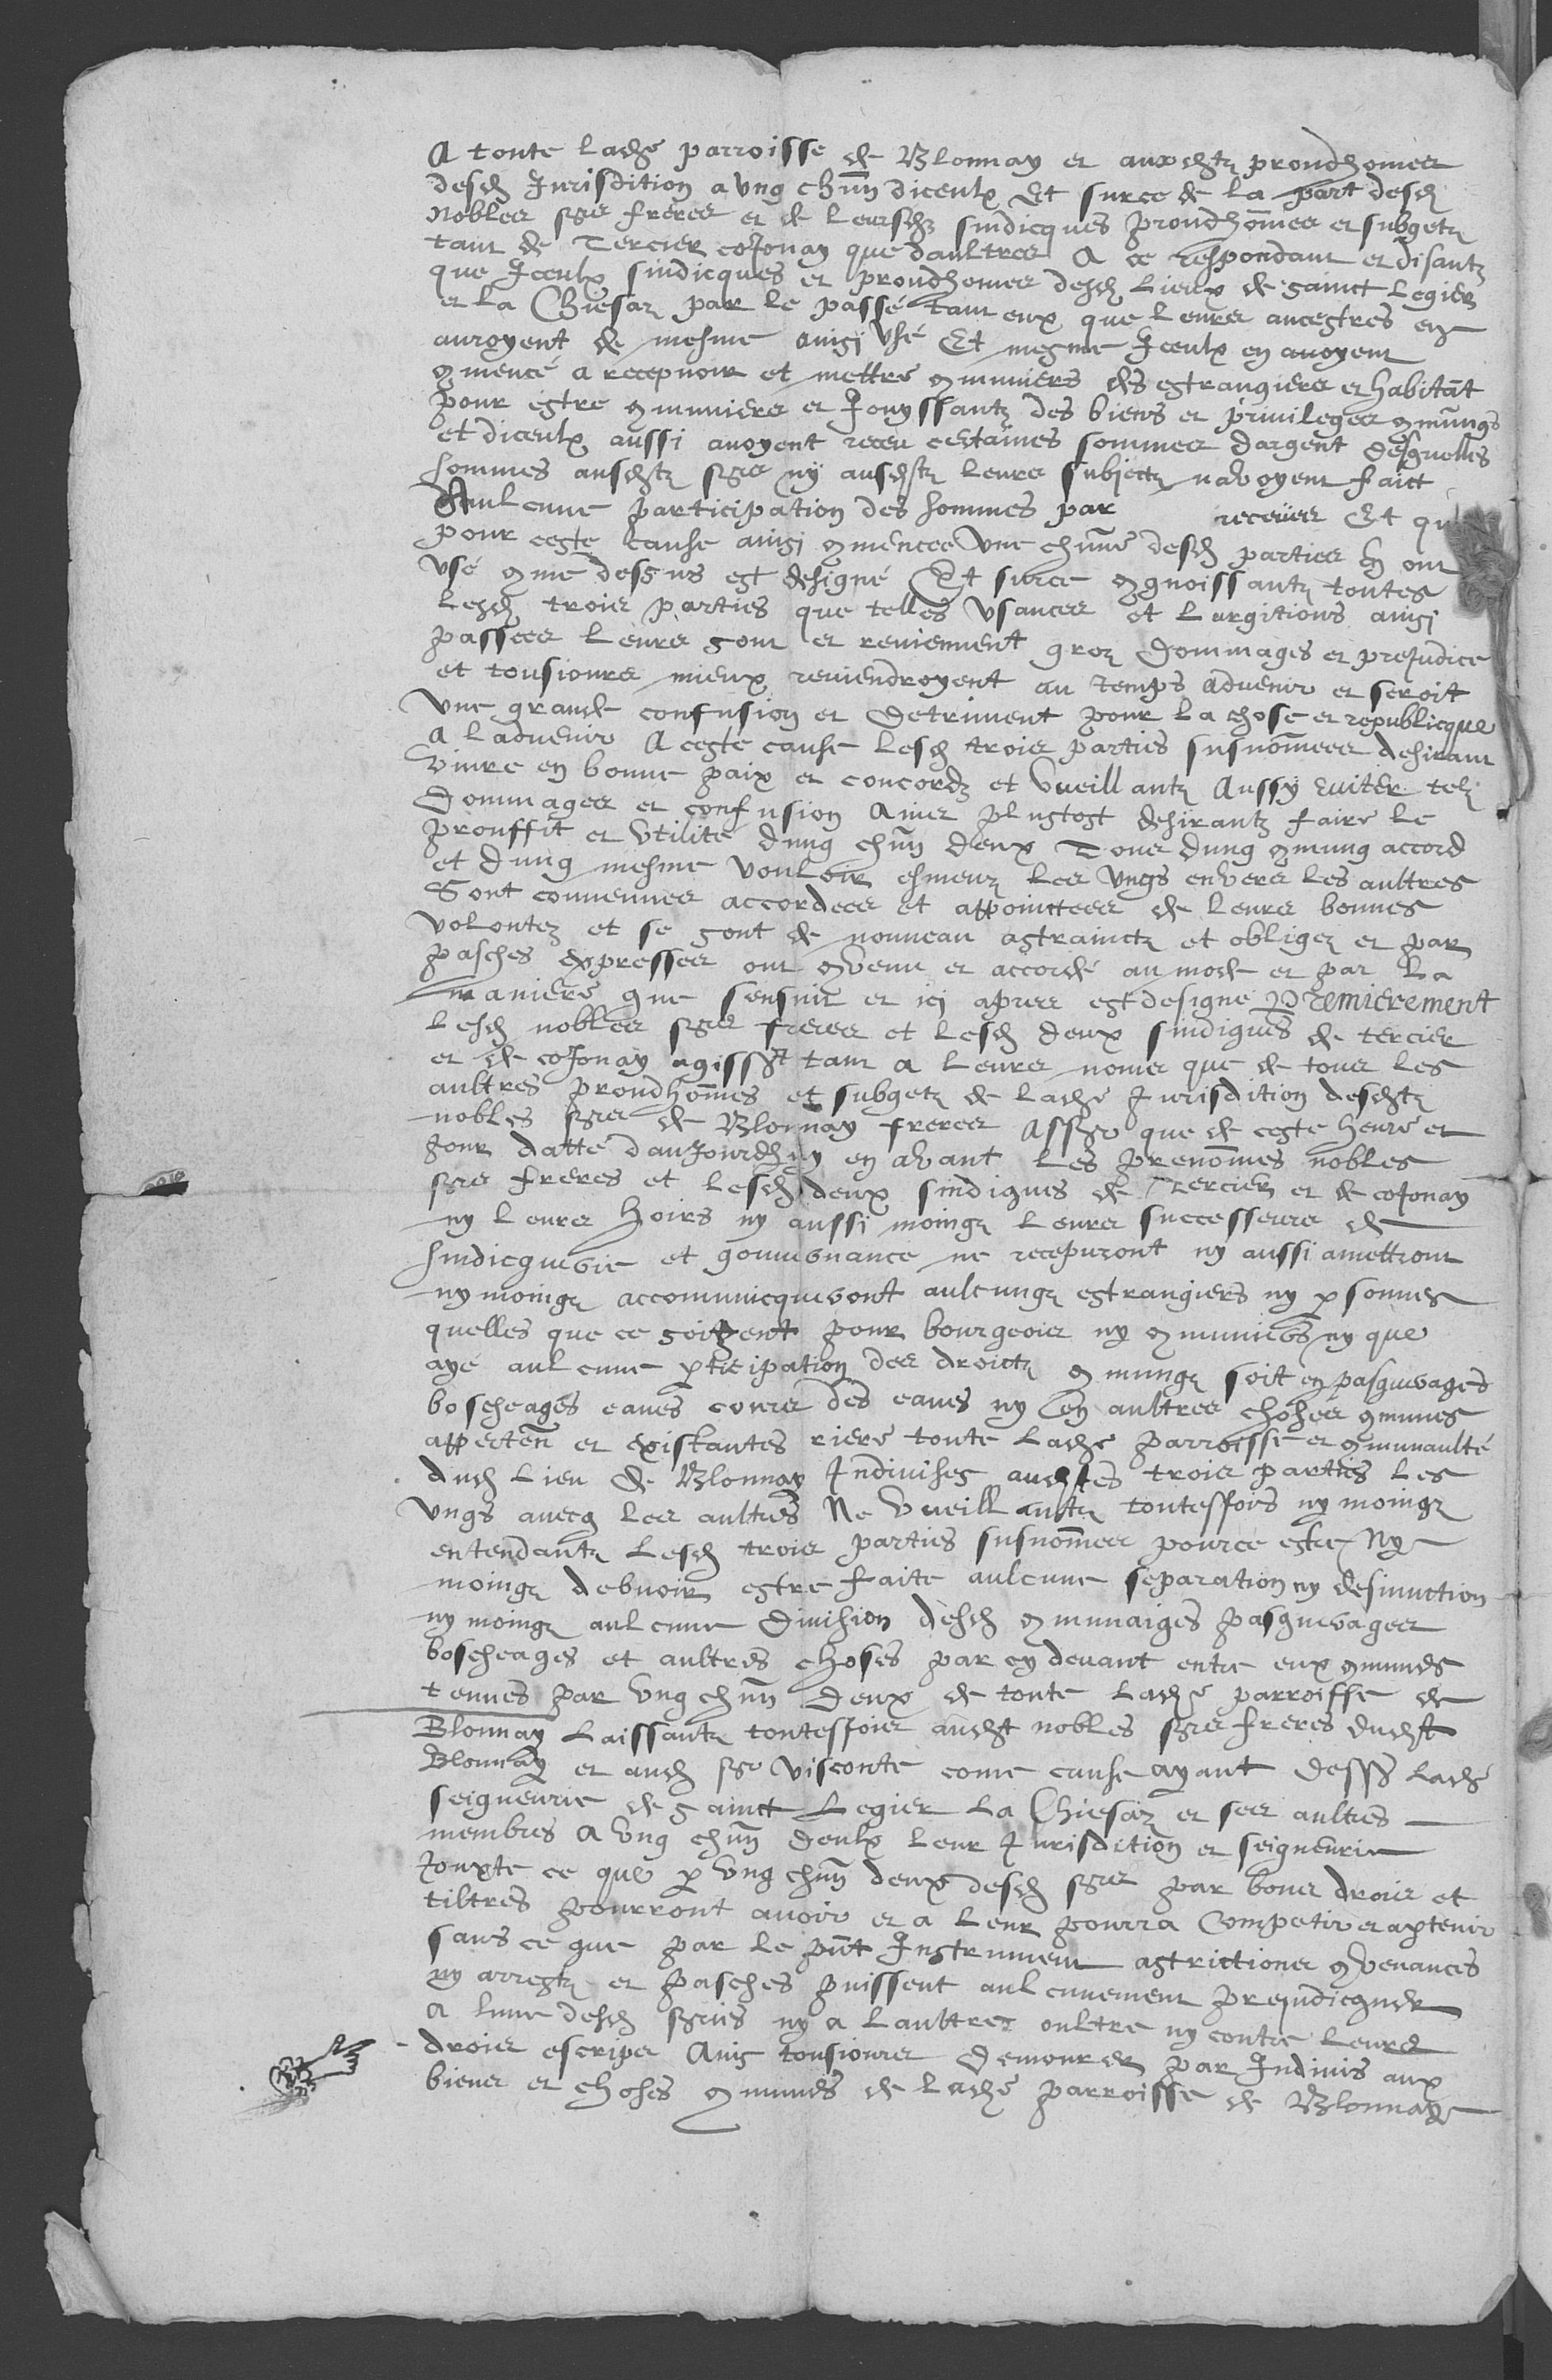 A toute ladte parroisse de Blonnay et auxdtz proudhomes
desd Jurisdition a ung chun diceulx Et surce de la part desd
Nobles sgrs freres et de leursdz sindicques proudhomes et subgetz
tant de Tercier coJonay que daultres A ce respondant et disantz
que Jceulx sindicques et proudhomes desd lieux de sainct Legier
et La Chiesaz par le passé tant eux que leurs ancestres en
auroyent de mesme ainsi usé Et mesme Jceulx en auoyent
9mencé a recepuoir et mettre 9muniers des estrangiers et habitāt
pour estre 9muniers et Jouyssantz des biens et priuileges 9mungs
et diceulx aussi auoyent receu certaines sommes dargent desquelles
sommes ausdtz sgrs ny ausdtz leurs subjectz navoyent faict
Aulcune participation des sommes par receues Et que
pour ceste cause ainsi 9mencee une chune desd parties en ont
usé 9me dessus est designé Et surce 9gnoissantz toutes
lesd trois parties que telles usances et largitions ainsi
passees leurs sont et reuiennent gros dommages et preJudice
et tousiours mieux reuiendroyent au temps aduenir et seroit
une grande confusion et detriment pour la chose et republicque
a laduenir A ceste cause lesd trois parties susnomees desirant
viure en bonne paix et concordz et vueillantz Aussy euiter telz
dommages et confusion Ains plustost desirantz faire le
prouffit et utilite dung chun deux Tous dung 9mung accord
et dung mesme vouloir esmeuz les ungs envers les aultres
Sont conuenues accordees et appoinctees de leurs bonnes
volontez et se sont de nouueau astrainctz et obligez et par
pasches expresses ont 9venu et accordé au mode et par la
maniere que sensuit et ici apres est designe Premierement
Lesd nobles sgrs freres et lesd deux sindiques de tercier
et de coJonay agissāt tant a leurs noms que de tous les
aultres proudhomes et subgetz de ladte Jurisdition desdtz
nobles sgrs de Blonnay freres Assr que de ceste heure et
Jour datte daujourdhuy en avant les prenomes nobles
sgrs freres et lesd deux sindiques de Tercier et de coJonay
ny leurs hoirs ny aussi moingz leurs successeurs de
sindicquerie et gouuernance ne recepuront ny aussi amettront
ny moingz accommuicqueront aulcungz estrangiers ny psonnes
quelles que ce soiyent pour bourgeois ny 9muniers ny que
aye aulcune pticipation des droictz 9mungz soit en pasquerages
boscheages eaues cours des eaues ny en aultres choses 9munes
apperten et existantes riere toute ladte parroisse et 9munaulté
dud lieu de Blonnay Indiuises audtes trois parties les
ungs auecq les aultres Ne vueillantz toutesfois ny moingz
entendantz lesd trois parties susnomees pource estre Ny
moingz debuoir estre faite aulcune separation ny desiunction
ny moingz aulcune diuision desd 9munaiges pasquerages
boscheages et aultres choses par cy deuant entre eux 9munes
tenues par ung chun deux de toute ladte parroisse de
Blonnay Laissantz toutesfois audt nobles sgrs freres dudt
Blonnay et aud sgr visconte come cause ayant desss ladte
seigneurie de sainct Legier La Chiesaz et ses aultres
membres A ung chun deulx leur Jurisdition et seigneurie
Jouxte ce que p ung chun deux desd sgrs par bons drois et
tiltres pourront auoir et a leur pourra Competir et aptenir
sans ce que par le pnt Instrument astrictions 9venances
ny arrestz et pasches puissent aulcunement preJudicquer
a lune desd sgries ny a laultres oultre ny contre leurs
drois escrips Ains tousiours demourer par Indiuis aux
biens et choses 9munes de ladte parroisse de Blonnay